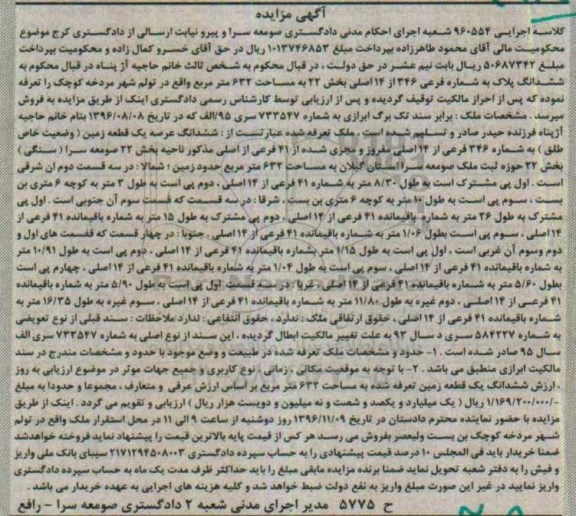 آگهی مزایده
کلاسه اجرایی ۹۶۰۵۵۴ شعبه اجرای احکام مدنی دادگستری صومعه سرا و پیرو نیابت ارسالی از دادگستری کرج موضوع
محکومیت مالی آقای محمود طاهرزاده بپرداخت مبلغ ۱۰۱۳۷۴۶۸۵۳ ریال در حق آقای خسرو کمال زاده و محکومیت بپرداخت
مبلغ ۵۰۶۸۷۳۴۲ ریال بابت نیم عشر در حق دولت ، در قبال محکوم به شخص ثالث خانم حاجیه آژ پناه در قبال محکوم به
ششدانگ پلاک به شماره فرعی ۳۴۶ از ۱۴ اصلی بخش ۲۲ به مساحت ۶۳۲ متر مربع واقع در تولم شهر مردخه کوچک را تعرفه
نموده که پس از احراز مالکیت توقیف گردیده و پس از ارزیابی توسط کارشناس رسمی دادگستری اینک از طریق مزایده به فروش
میرسد . مشخصات ملک : برابر سند تک برگ ابرازی به شماره ۷۳۳۵۴۷ سری ۹۵/الف که در تاریخ ۱۳۹۶/۰۸/۰۸ بنام خانم حاجیه
آژپناه فرزند حیدر صادر و تسلیم شده است . ملک تعرفه شده عبارتست از : ششدانگ عرصه یک قطعه زمین ( وضعیت خاص
طلق ) به شماره ۳۴۶ فرعی از ۱۴ اصلی مفروز و مجزی شده از ۴۱ فرعی از اصلی مذکور ناحیه بخش ۲۲ صومعه سرا ( سنگی )
بخش ۲۲ حوزه ثبت ملک صومعه سرا استان گیلان به مساحت ۶۳۲ متر مربع حدود زمین : شمالا : در سه قسمت دوم ان شرقی
است . اول پی مشترک است به طول ۸/۳۰ متر به شماره ۴۱ فرعی از ۱۴ اصلی ، دوم پی است به طول ۳ متر به کوچه ۶ متری بن
بست ، سوم پی است به طول ۱۰ متر به کوچه ۶ متری بن بست . شرقا : در سه قسمت که قسمت سوم آن جنوبی است . اول پی
مشترک به طول ۲۶ متر به شماره باقیمانده ۴۱ فرعی از ۱۴ اصلی ، دوم پی مشترک به طول ۱۵ متر به شماره باقیمانده ۴۱ فرعی از
۱۴ اصلی ، سوم پی است بطول ۱/۰۶ متر به شماره باقیمانده ۴۱ فرعی از ۱۴ اصلی . جنوبا : در چهار قسمت که قسمت های اول و
دوم وسوم آن غربی است . اول پی است به طول ۱/۱۵ متر بشماره باقیمانده ۴۱ فرعی از ۱۴ اصلی ، دوم پی است به طول ۱۰/۹۱ متر
به شماره باقیمانده ۴۱ فرعی از ۱۴ اصلی ، سوم پی است به طول ۱/۰۴ متر به شماره باقیمانده ۴۱ فرعی از ۱۴ اصلی ، چهارم پی است
به طول ۵/۶۰ متر به شماره باقیمانده ۴۱ فرعی از ۱۴ اصلی . غربا : در سه قسمت اول پی است به طول ۵/۹۰ متر به شماره باقیمانده
۴۱ فرعی از ۱۴ اصلی ، دوم غیره به طول ۱۱/۸۰ متر به شماره باقیمانده ۴۱ فرعی از ۱۴ اصلی ، سوم غیره به طول ۱۶/۳۵ متر به
شماره باقیمانده ۴۱ فرعی از ۱۴ اصلی . حقوق ارتفاقی ملک : ندارد . حقوق انتفاعی : ندارد ملاحظات : سند قبلی از نوع تعویضی
به شماره ۵۸۴۲۲۷ سری د سال ۹۳ به علت تغییر مالکیت ابطال گردیده ، این سند از نوع اصلی به شماره ۷۳۳۵۴۷ سری الف
سال ۹۵ صادر شده است . ۱- حدود و مشخصات ملک تعرفه شده در طبیعت و وضع موجود با حدود و مشخصات مندرج در سند
مالکیت ابرازی منطبق می باشد . ۲- با توجه به موقعیت مکانی ، زمانی ، نوع کاربری و جمیع جهات موثر در موضوع ارزیابی به روز
، ارزش ششدانگ یک قطعه زمین تعرفه شده به مساحت ۶۳۲ متر مربع بر اساس ارزش عرفی و متعارف ، مجموعا و حدودا به مبلغ
۱/۱۶۹/۲۰۰/۰۰۰/- ریال ( یک میلیارد و یکصد و شصت و نه میلیون و دویست هزار ریال ) ارزیابی و تقویم می گردد . اینک از طریق
مزایده با حضور نماینده محترم دادستان در تاریخ ۱۳۹۶/۱۱/۰۹ روز دوشنبه از ساعت ۹ الی ۱۱ در محل استقرار ملک واقع در تولم
شهر مردخه کوچک بن بست ولیعصر بفروش می رسد هر کس از قیمت پایه بالاترین قیمت را پیشنهاد نماید فروخته خواهدشد
ضمنا خریدار باید فی المجلس ۱۰ درصد قیمت پیشنهادی را به حساب سپرده دادگستری ۲۱۷۱۲۹۴۵۰۸۰۰۳ سیبای بانک ملی واریز
و فیش را به دفتر شعبه تحویل نماید ضمنا برنده مزایده مابقی مبلغ را باید حداکثر ظرف مدت یک ماه به حساب سپرده دادگستری
واریز نمایید در غیر این صورت مبلغ واریز به نفع دولت ضبط خواهد شد و کلیه هزینه های اجرایی به عهده خریدار می باشد .
ح ۵۷۷۵ مدیر اجرای مدنی شعبه ۲ دادگستری صومعه سرا - رافع